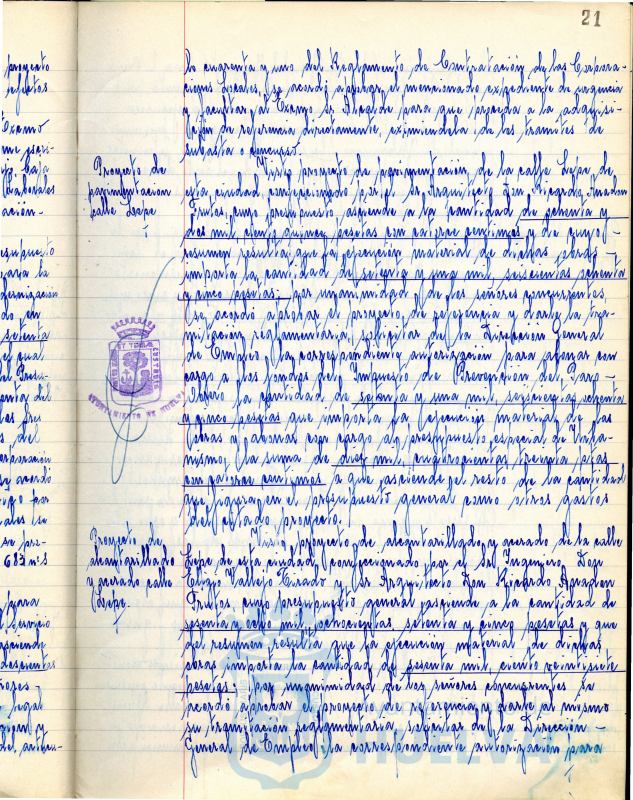 21
proyecto
efectos
Excmo
Caja
Laborales
ación-
setenta
el cual
s del
y acordó
683 m²s
para
servicio
legal
Proyecto de
pavimentación
calle Lepe
AYUNTAMIENTO DE HUELVA
Proyecto de
alcantarillado
y acerado calle
Lepe.
lo cuarenta y uno del Reglamento de Contratación de las Corpora-
ciones Locales, se acordó aprobar el mencionado expediente de urgencia
y facultar al Excmo. Sr. Alcalde para que proceda a la adquisi-
ción de referencia directamente, eximiéndola de los trámites de
subasta o concurso.
Visto proyecto de pavimentación de la calle Lepe, de
esta ciudad, confeccionado por el Sr. Arquitecto Don Ricardo Anadon
Frutos, cuyo presupuesto asciende a la cantidad de ochenta y
dos mil, ciento quince pesetas con catorce céntimos y de cuyo
resumen resulta que la ejecución material de dichas obras
importa la cantidad de setenta y una mil, seiscientas ochenta
y cinco pesetas; por unanimidad de los señores concurrentes,
se acordó aprobar el proyecto de referencia y darle la tra-
mitación reglamentaria, solicitar de la Dirección General
de Empleo la correspondiente autorización para abonar con
cargo a los fondos del Impuesto de Prevención del Paro
Obrero la cantidad de setenta y una mil, seiscientas ochenta
y cinco pesetas que importa la ejecución material de las
obras y abonar con cargo al presupuesto especial de Urba-
nismo, la suma de diez mil, cuatrocientas treinta ptas
con catorce céntimos a que asciende el resto de la cantidad
que figura en el presupuesto general como otros gastos
del citado proyecto.
Visto proyecto de alcantarillado y acerado de la calle
Lepe de esta ciudad, confeccionado por el Sr. Ingeniero Don
Eligio Vallejo Tirado y Sr. Arquitecto Don Ricardo Anadon
Frutos, cuyo presupuesto general asciende a la cantidad de
sesenta y ocho mil, ochocientas, setenta y cinco pesetas y que
del resumen resulta que la ejecución material de dichas
obras importa la cantidad de sesenta mil, ciento veintisiete
pesetas; por unanimidad de los señores concurrentes se
acordó aprobar el proyecto de referencia y darle al mismo
su tramitación reglamentaria, solicitar de la Dirección
General de Empleo la correspondiente autorización para
HUELVA